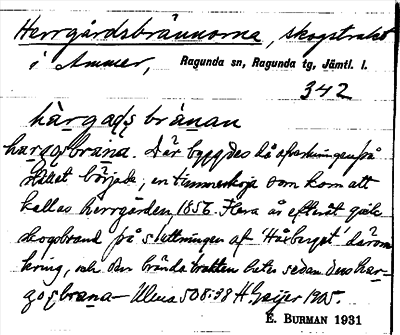 Herrgårdsbrännorna, skogstrakt
i Ammer, Ragunda sn, Ragunda tg, Jämtl. l.
342
hàrgaɖʂ brànan
hargoʂbrana. Där byggdes då afverkningen på
stället började, en timmerkoja som kom att
kallas herrgården 1856. Flera år efteråt gick
skogsbrand på sluttningen af 'Håsberget' därom-
kring, och den brända trakten hetes sedan den har-
goʂbrana – Ulvus 508:38 H Geijer 1905.
E. BURMAN 1931